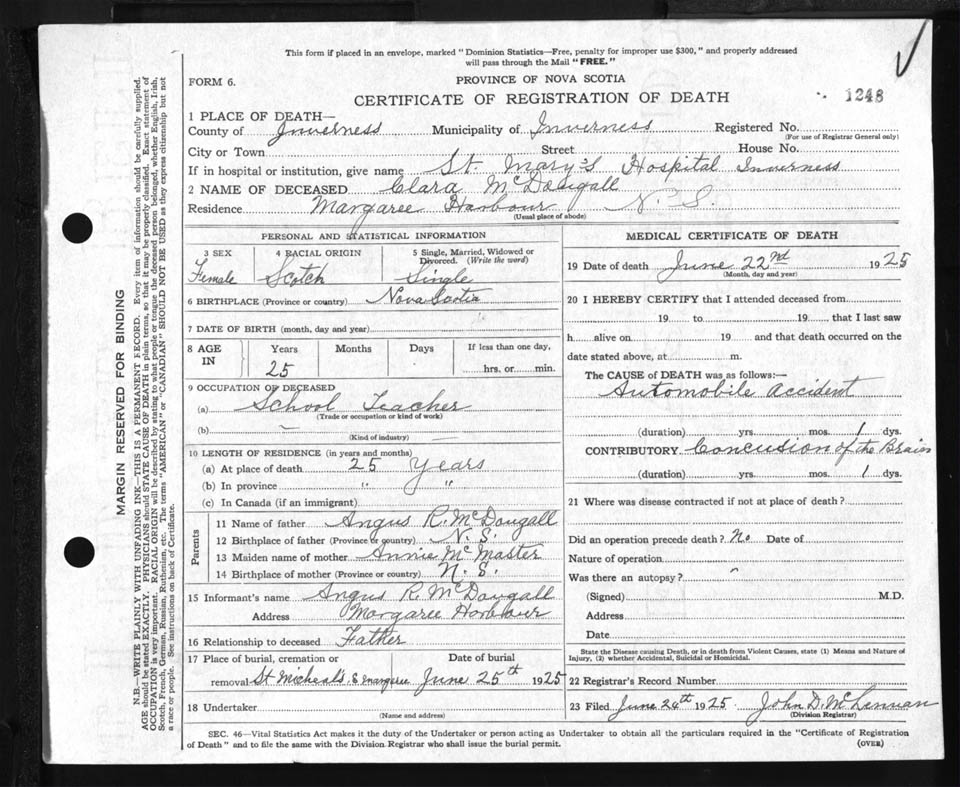 This form if placed in an envelope, marked "Dominion Statistics—Free, penalty for improper use $300," and properly addressed
will pass through the Mail "FREE."
FORM 6.
PROVINCE OF NOVA SCOTIA
CERTIFICATE OF REGISTRATION OF DEATH
1248
1 PLACE OF DEATH—
County of Inverness Municipality of Inverness Registered No.
(For use of Registrar General only)
City or Town Street House No.
If in hospital or institution, give name St. Mary's Hospital Inverness
2 NAME OF DECEASED Clara McDougall
Residence Margaree Harbour N. S.
(Usual place of abode)
PERSONAL AND STATISTICAL INFORMATION
3 SEX 4 RACIAL ORIGIN 5 Single, Married, Widowed or
Divorced. (Write the word)
Female Scotch Single
6 BIRTHPLACE (Province or country) Nova Scotia
7 DATE OF BIRTH (month, day and year)
8 AGE IN Years Months Days If less than one day,
25 hrs. or min.
9 OCCUPATION OF DECEASED
(a) School Teacher
(Trade or occupation or kind of work)
(b) —
(Kind of industry)
10 LENGTH OF RESIDENCE (in years and months)
(a) At place of death 25 Years
(b) In province " "
(c) In Canada (if an immigrant)
Parents
11 Name of father Angus R. McDougall
12 Birthplace of father (Province or country) N. S.
13 Maiden name of mother Annie McMaster
14 Birthplace of mother (Province or country) N. S.
15 Informant's name Angus R. McDougall
Address Margaree Harbour
16 Relationship to deceased Father
17 Place of burial, cremation or Date of burial
removal St Micheals E margaree June 25th 1925
18 Undertaker
(Name and address)
MEDICAL CERTIFICATE OF DEATH
19 Date of death June 22nd 1925
(Month, day and year)
20 I HEREBY CERTIFY that I attended deceased from
19 to 19, that I last saw
h alive on 19 and that death occurred on the
date stated above, at m.
The CAUSE of DEATH was as follows:—
Automobile accident
(duration) yrs. mos. 1 dys.
CONTRIBUTORY Concusion of the Brain
(duration) yrs. mos. 1 dys.
21 Where was disease contracted if not at place of death?
Did an operation precede death? No Date of
Nature of operation
Was there an autopsy?
(Signed) M.D.
Address
Date
State the Disease causing Death, or in death from Violent Causes, state (1) Means and Nature of
Injury, (2) whether Accidental, Suicidal or Homicidal.
22 Registrar's Record Number
23 Filed June 24th 1925 John D. McLennan
(Division Registrar)
SEC. 46—Vital Statistics Act makes it the duty of the Undertaker or person acting as Undertaker to obtain all the particulars required in the "Certificate of Registration
of Death" and to file the same with the Division Registrar who shall issue the burial permit. (OVER)
MARGIN RESERVED FOR BINDING
N.B.—WRITE PLAINLY WITH UNFADING INK—THIS IS A PERMANENT RECORD. Every item of information should be carefully supplied.
AGE should be stated EXACTLY. PHYSICIANS should STATE CAUSE OF DEATH in plain terms, so that it may be properly classified. Exact statement of
OCCUPATION is very important. RACIAL ORIGIN will be described by stating to what people or tongue the deceased person belonged, whether English, Irish,
Scotch, French, German, Russian, Ruthenian, etc. The terms "AMERICAN" or "CANADIAN" SHOULD NOT BE USED as they express citizenship but not
a race or people. See instructions on back of Certificate.